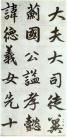 大夫大司徒冀
薊國公謚孝懿
諱德義女先十